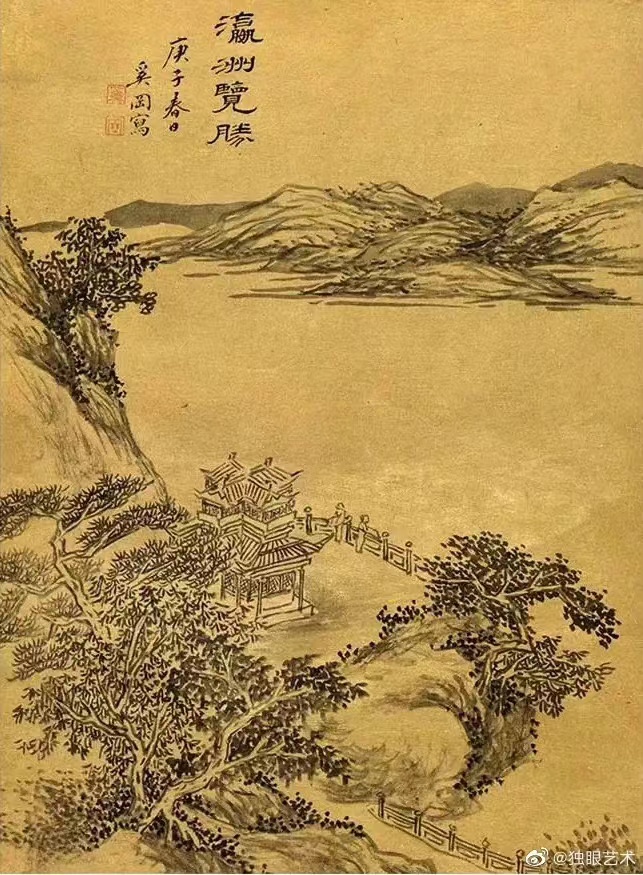 瀛洲覽勝
庚子春日
奚岡寫
@独眼艺术